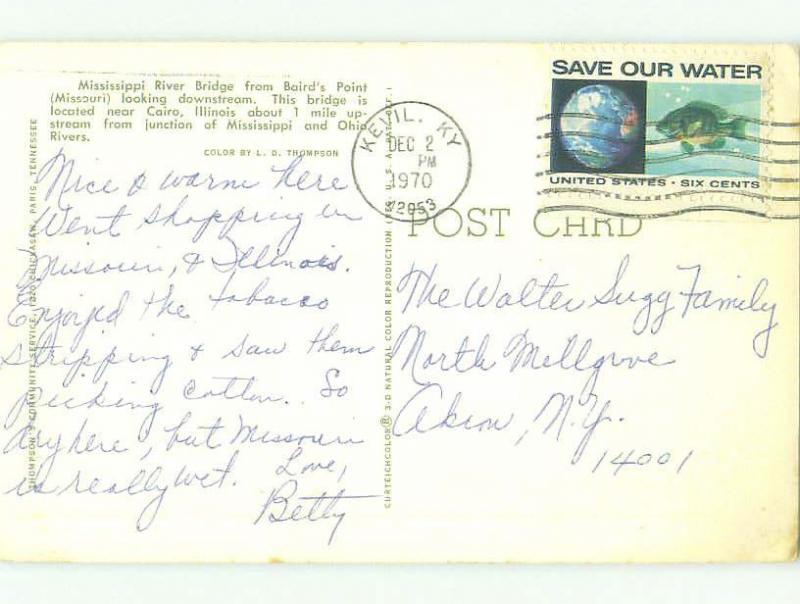 Mississippi River Bridge from Baird's Point
(Missouri) looking downstream. This bridge is
located near Cairo, Illinois about 1 mile up-
stream from junction of Mississippi and Ohio
Rivers.
COLOR BY L. D. THOMPSON
Nice & warm here
Went shopping in
Missouri, & Illinois.
Enjoyed the tobacco
stripping & saw them
picking cotton. So
dry here, but Missouri
is really wet. Love,
Betty
THOMPSON'S COMMUNITY SERVICE, CHICKASAW, PARIS, TENNESSEE
CURTEICHCOLOR® 3-D NATURAL COLOR REPRODUCTION
KEVIL, KY
DEC 2
PM
1970
42053
SAVE OUR WATER
UNITED STATES · SIX CENTS
POST CARD
The Walter Sugg Family
North Millgrove
Akron, N.Y.
14001